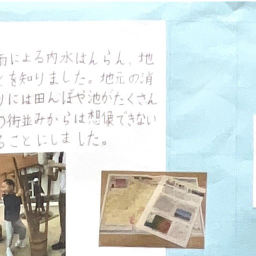 雨による内水はんらん、地
とを知りました。地元の消
りには田んぼや池がたくさん
の街並みからは想像できない
ることにしました。